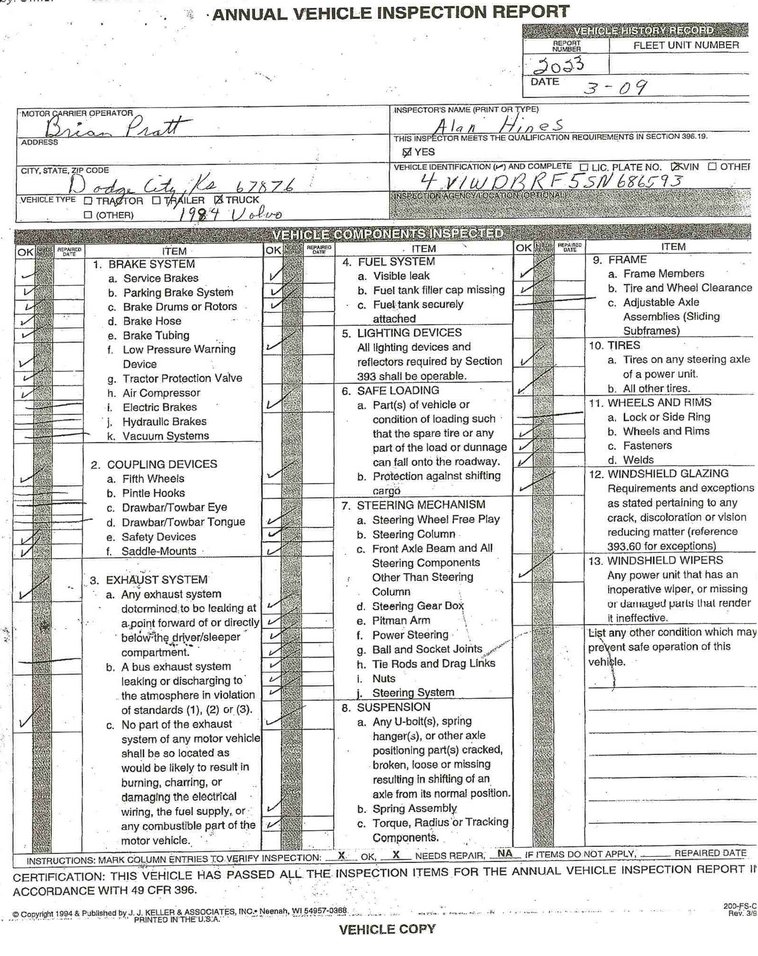 ANNUAL VEHICLE INSPECTION REPORT
VEHICLE HISTORY RECORD
REPORT NUMBER
FLEET UNIT NUMBER
2023
DATE
3-09
MOTOR CARRIER OPERATOR
Brian Pratt
ADDRESS
CITY, STATE, ZIP CODE
Dodge City, Ks 67876
VEHICLE TYPE ☐ TRACTOR ☐ TRAILER ☒ TRUCK
☐ (OTHER) 1984 Volvo
INSPECTOR'S NAME (PRINT OR TYPE)
Alan Hines
THIS INSPECTOR MEETS THE QUALIFICATION REQUIREMENTS IN SECTION 396.19.
☒ YES
VEHICLE IDENTIFICATION (✓) AND COMPLETE ☐ LIC. PLATE NO. ☒ VIN ☐ OTHER
4V1WDBRF5SN686593
INSPECTION AGENCY/LOCATION (OPTIONAL)
VEHICLE COMPONENTS INSPECTED
OK
REPAIRED DATE
ITEM
1. BRAKE SYSTEM
a. Service Brakes
b. Parking Brake System
c. Brake Drums or Rotors
d. Brake Hose
e. Brake Tubing
f. Low Pressure Warning
Device
g. Tractor Protection Valve
h. Air Compressor
i. Electric Brakes
j. Hydraulic Brakes
k. Vacuum Systems
2. COUPLING DEVICES
a. Fifth Wheels
b. Pintle Hooks
c. Drawbar/Towbar Eye
d. Drawbar/Towbar Tongue
e. Safety Devices
f. Saddle-Mounts
3. EXHAUST SYSTEM
a. Any exhaust system
determined to be leaking at
a point forward of or directly
below the driver/sleeper
compartment.
b. A bus exhaust system
leaking or discharging to
the atmosphere in violation
of standards (1), (2) or (3).
c. No part of the exhaust
system of any motor vehicle
shall be so located as
would be likely to result in
burning, charring, or
damaging the electrical
wiring, the fuel supply, or
any combustible part of the
motor vehicle.
OK
REPAIRED DATE
ITEM
4. FUEL SYSTEM
a. Visible leak
b. Fuel tank filler cap missing
c. Fuel tank securely
attached
5. LIGHTING DEVICES
All lighting devices and
reflectors required by Section
393 shall be operable.
6. SAFE LOADING
a. Part(s) of vehicle or
condition of loading such
that the spare tire or any
part of the load or dunnage
can fall onto the roadway.
b. Protection against shifting
cargo
7. STEERING MECHANISM
a. Steering Wheel Free Play
b. Steering Column
c. Front Axle Beam and All
Steering Components
Other Than Steering
Column
d. Steering Gear Box
e. Pitman Arm
f. Power Steering
g. Ball and Socket Joints
h. Tie Rods and Drag Links
i. Nuts
j. Steering System
8. SUSPENSION
a. Any U-bolt(s), spring
hanger(s), or other axle
positioning part(s) cracked,
broken, loose or missing
resulting in shifting of an
axle from its normal position.
b. Spring Assembly
c. Torque, Radius or Tracking
Components.
OK
REPAIRED DATE
ITEM
9. FRAME
a. Frame Members
b. Tire and Wheel Clearance
c. Adjustable Axle
Assemblies (Sliding
Subframes)
10. TIRES
a. Tires on any steering axle
of a power unit.
b. All other tires.
11. WHEELS AND RIMS
a. Lock or Side Ring
b. Wheels and Rims
c. Fasteners
d. Welds
12. WINDSHIELD GLAZING
Requirements and exceptions
as stated pertaining to any
crack, discoloration or vision
reducing matter (reference
393.60 for exceptions)
13. WINDSHIELD WIPERS
Any power unit that has an
inoperative wiper, or missing
or damaged parts that render
it ineffective.
List any other condition which may
prevent safe operation of this
vehicle.
INSTRUCTIONS: MARK COLUMN ENTRIES TO VERIFY INSPECTION: X OK, X NEEDS REPAIR, NA IF ITEMS DO NOT APPLY, ____ REPAIRED DATE
CERTIFICATION: THIS VEHICLE HAS PASSED ALL THE INSPECTION ITEMS FOR THE ANNUAL VEHICLE INSPECTION REPORT IN
ACCORDANCE WITH 49 CFR 396.
© Copyright 1994 & Published by J. J. KELLER & ASSOCIATES, INC. • Neenah, WI 54957-0368
PRINTED IN THE U.S.A.
200-FS-C
Rev. 3/9
VEHICLE COPY